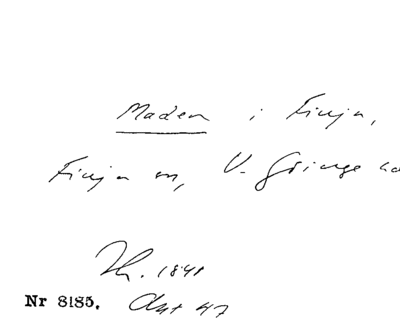 Maden i Finja,
Finja sn, V. Göinge
Th. 1841
Nr 8185. Akt 47